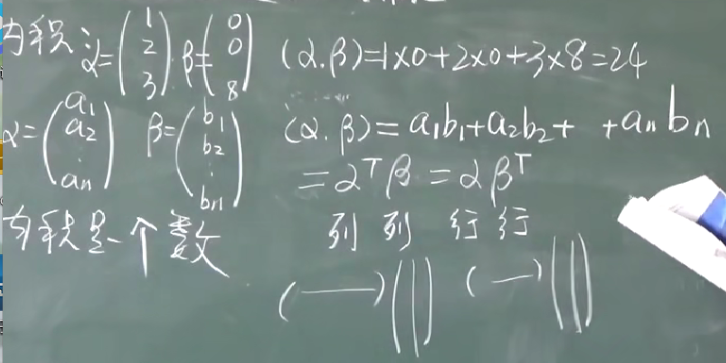 内积 设α=(1 2 3) β=(0 0 8) (α.β)=1×0+2×0+3×8=24
α=(a₁ a₂ ⋮ aₙ) β=(b₁ b₂ ⋮ bₙ) (α.β)=a₁b₁+a₂b₂+ +aₙbₙ
=αᵀβ=αβᵀ
内积是一个数 列 列 行 行